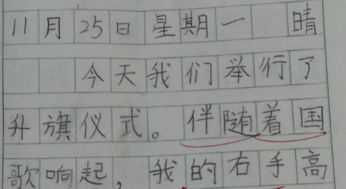 11月25日 星期一 晴
今天我们举行了
升旗仪式。伴随着国
歌响起，我的右手高